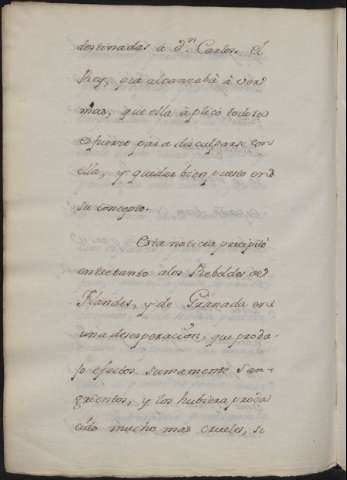 destinadas a d.n Carlos. El
Rey, que alcanzaba à ver
mas, que ella aplicó todo su
esfuerzo para disculparse con
ella, y quedar bien puesto en
su concepto.
Esta noticia precipitó
entretanto a los Rebeldes de
Flandes, y de Granada en
una desesperación, que produ-
jo efectos sumamente san-
grientos, y los hubiera produ
cido mucho mas crueles, si